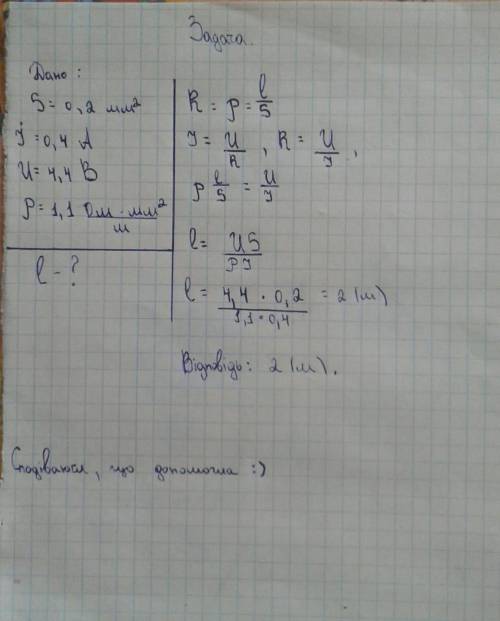 Задача.
Дано:
S = 0,2 мм²
I = 0,4 А
U = 4,4 В
ρ = 1,1 Ом · мм² / м
l - ?
R = ρ = l/S
I = U/R , R = U/I ,
ρ l/S = U/I
l = US / ρI
l = 4,4 · 0,2 / 1,1 · 0,4 = 2 (м)
Відповідь: 2 (м).
Сподіваюся, що допомогла :)